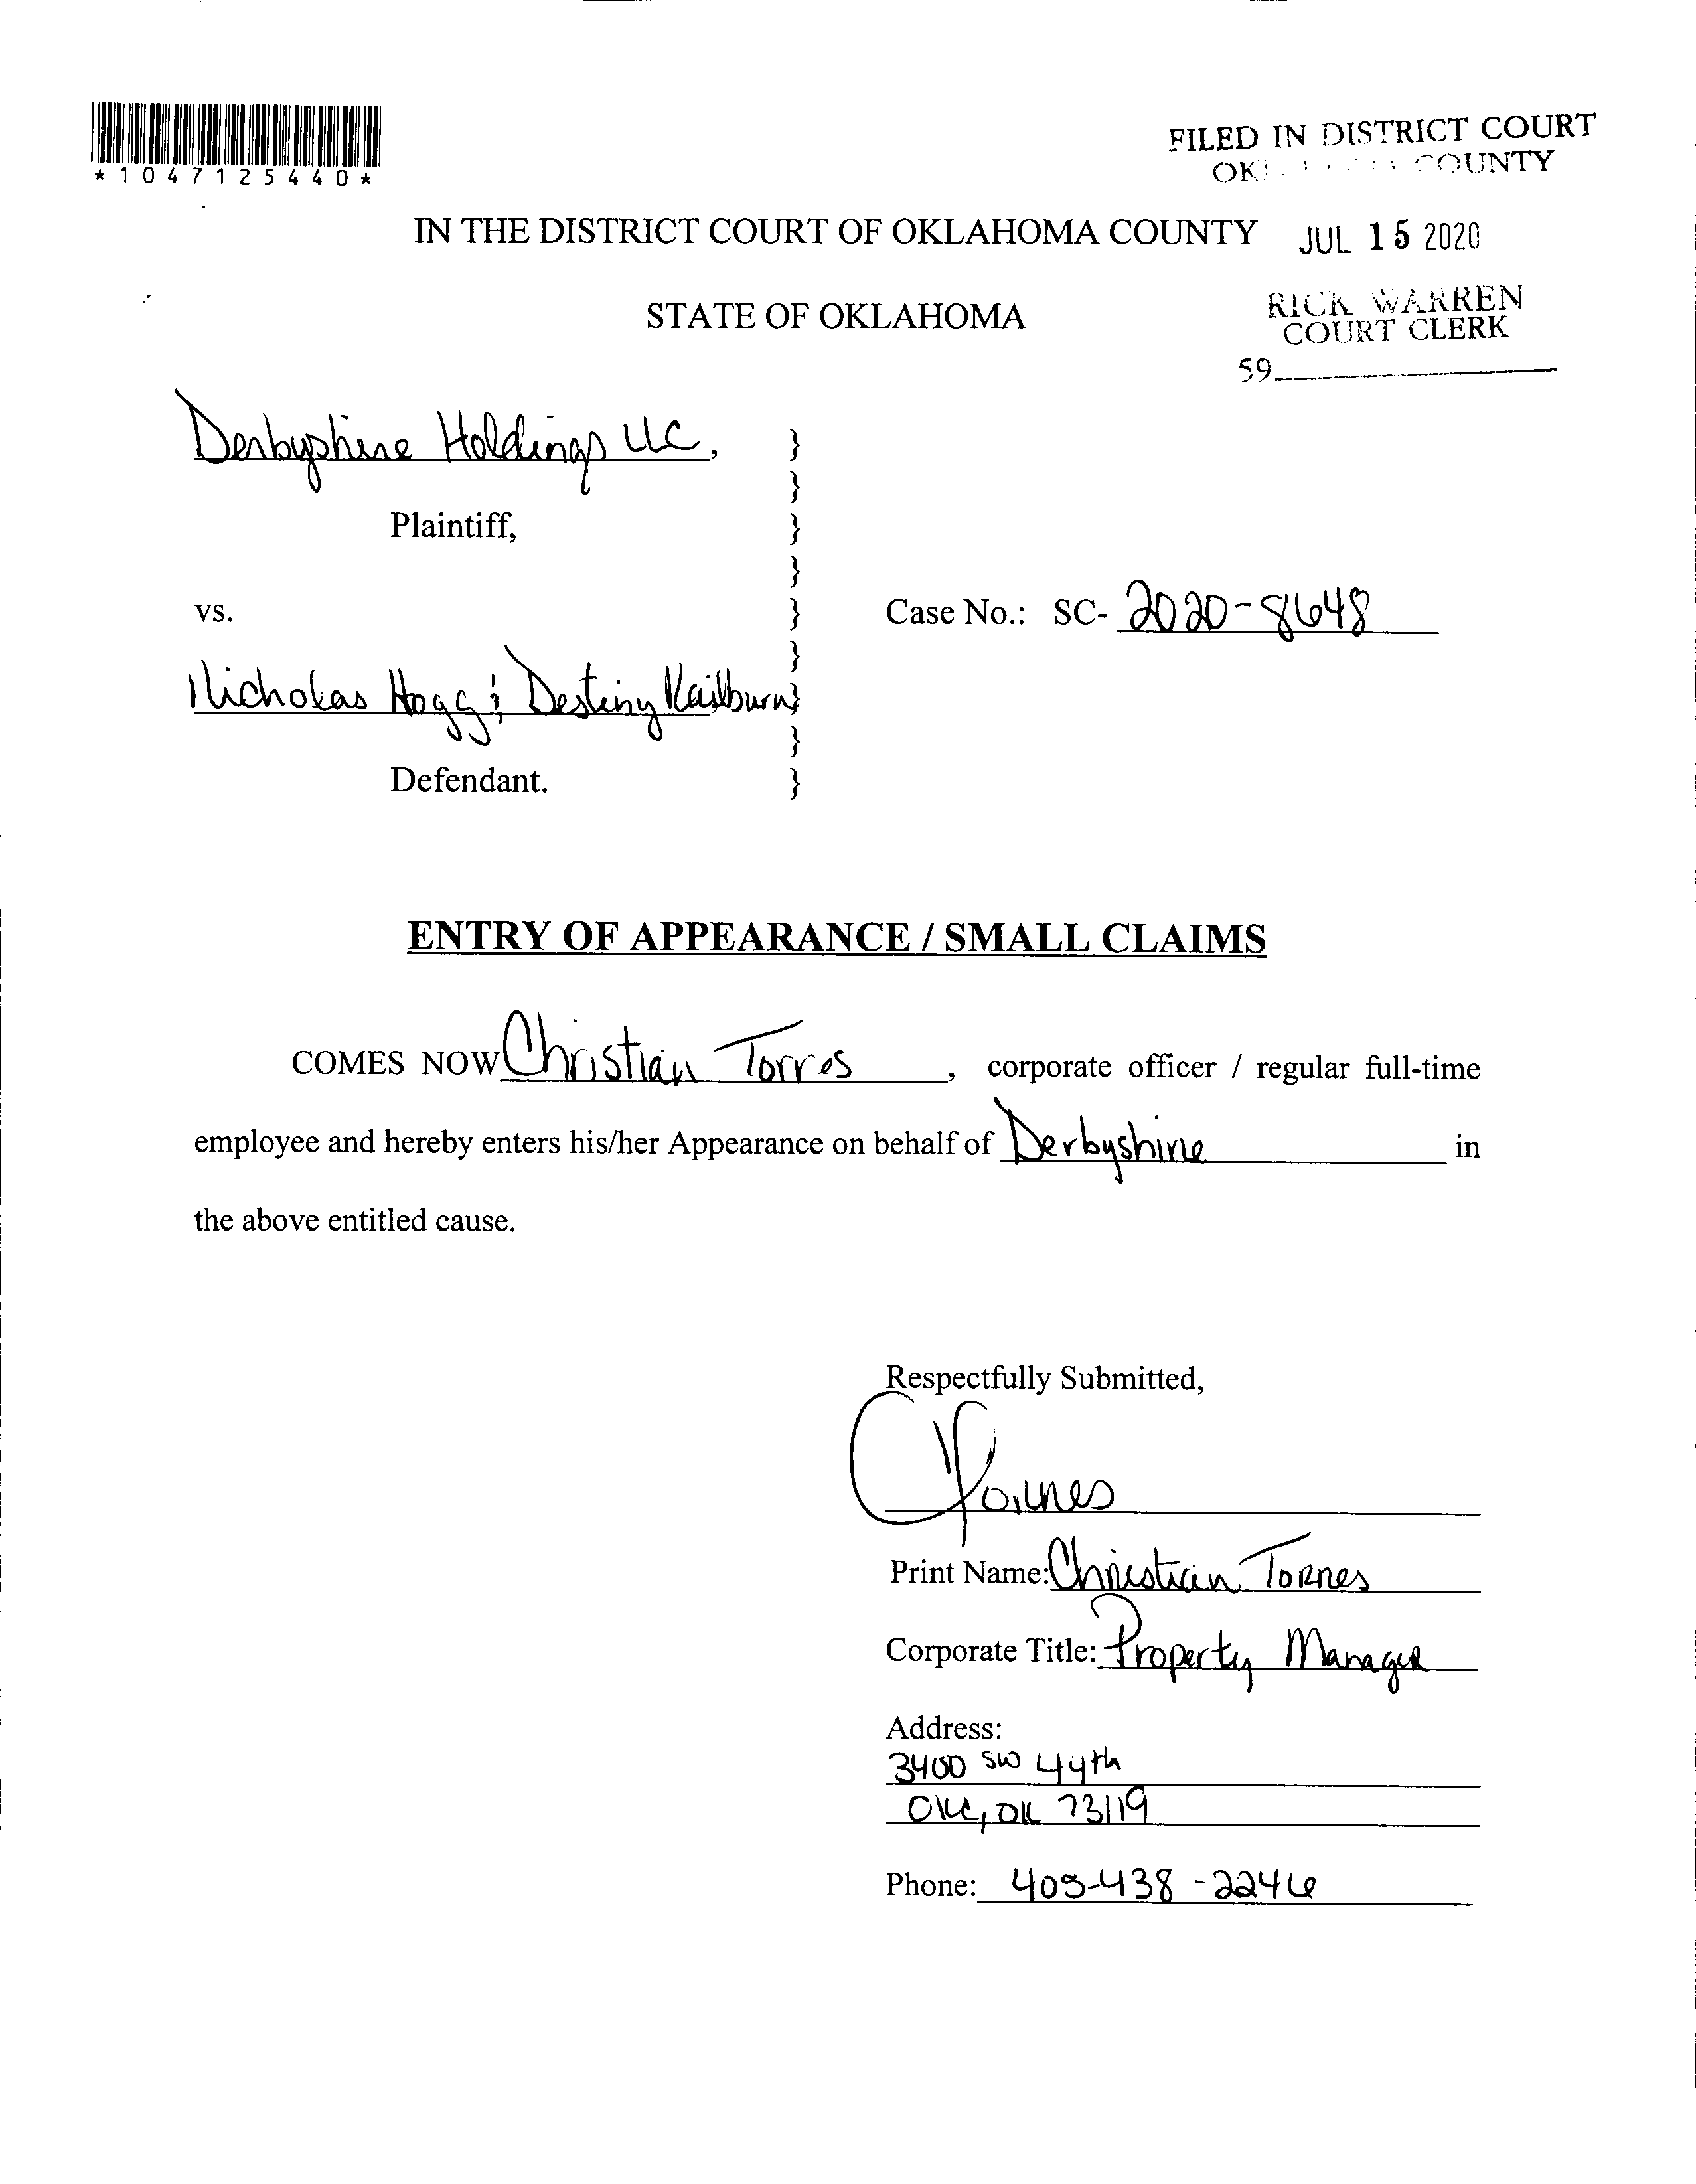 *1047125440*
FILED IN DISTRICT COURT
COUNTY
IN THE DISTRICT COURT OF OKLAHOMA COUNTY
JUL 15 2020
STATE OF OKLAHOMA
RICK WARREN
COURT CLERK
59
Derbyshire Holdings LLC,
}
}
Plaintiff,
}
}
vs.
}
Case No.: SC- 2020-8648
}
Nicholas Hogg & Destiny
}
}
Defendant.
}
ENTRY OF APPEARANCE / SMALL CLAIMS
COMES NOW Christian Torres, corporate officer / regular full-time
employee and hereby enters his/her Appearance on behalf of Derbyshire in
the above entitled cause.
Respectfully Submitted,
CTorres
Print Name: Christian Torres
Corporate Title: Property Manager
Address:
3400 SW 44th
OKC, OK 73119
Phone: 405-438-2246